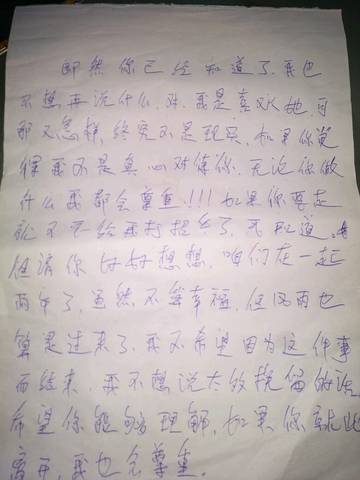 即然你已经知道了,我也
不想再说什么,对,我是喜欢她,可
那又怎样,终究不是现实,如果你觉
得我不是真心对待你,无论你做
什么我都会尊重!!!如果你要走
就不
但请你好好想想,咱们在一起
两年了,虽然不算幸福,但风雨也
算是过来了,我不希望因为这件事
而结束,我不想说太多挽留的话
希望你能够理解,如果你就此
离开,我也会尊重。